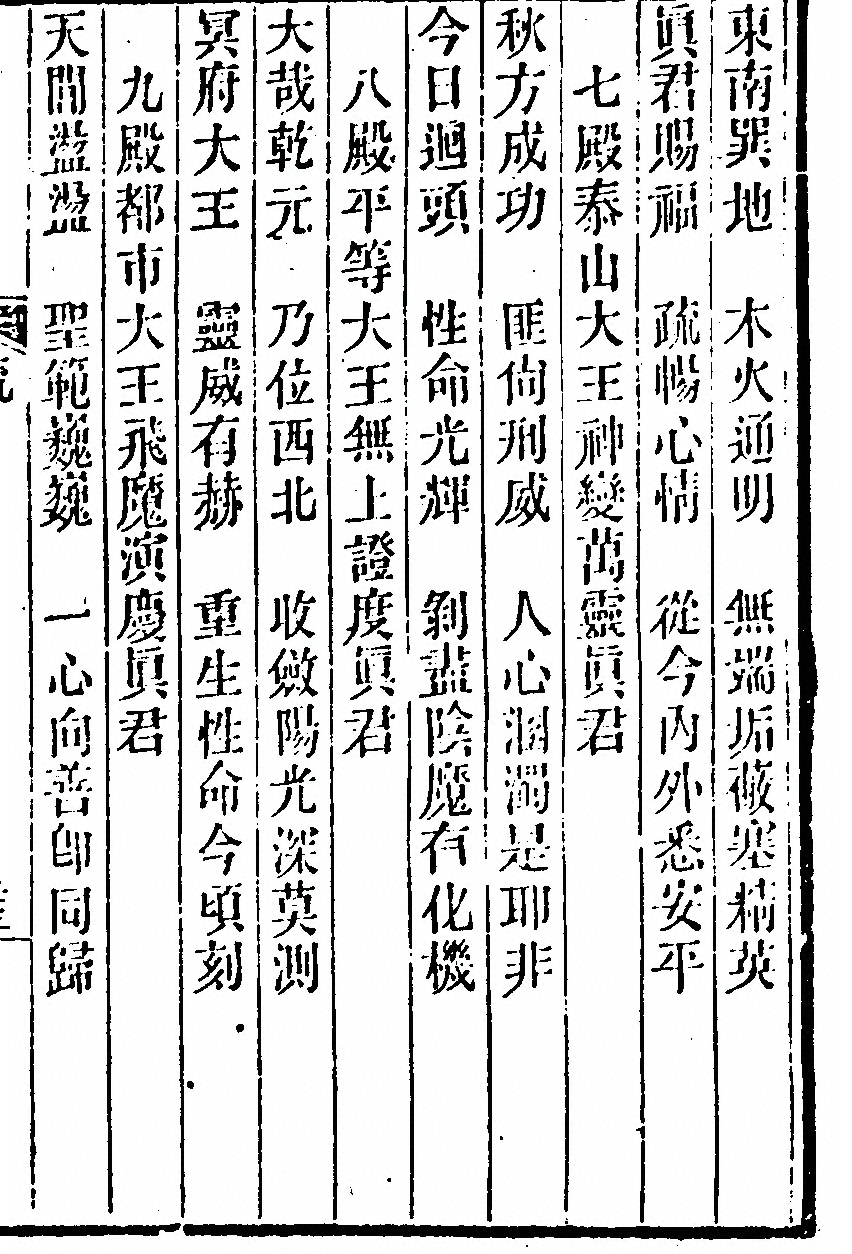 東南巽地　木火通明　無端垢蔽塞精英
眞君賜福　疏暢心情　從今內外悉安平
七殿泰山大王神變萬靈眞君
秋方成功　匪尙刑威　人心溷濁是耶非
今日迴頭　性命光輝　剝盡陰魔有化機
八殿平等大王無上證度眞君
大哉乾元　乃位西北　收斂陽光深莫測
冥府大王　靈威有赫　重生性命今頃刻
九殿都市大王飛魔演慶眞君
天開盪盪　聖範巍巍　一心向善卽同歸